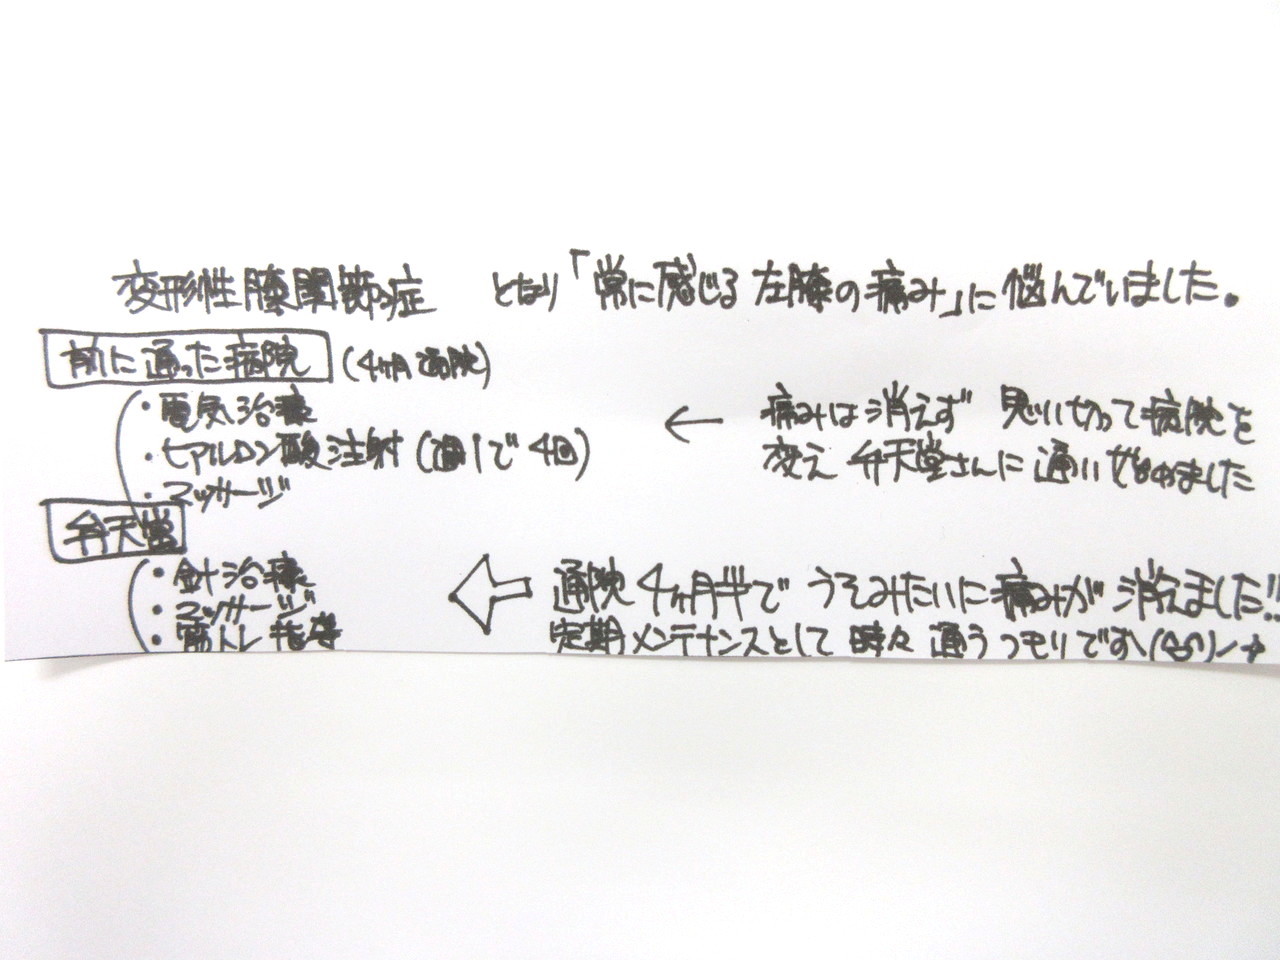 変形性膝関節症 となり「常に感じる左膝の痛み」に悩んでいました。
前に通った病院 (4ヶ月通院)
・電気治療
・ヒアルロン酸注射 (週1で4回)
・マッサージ
← 痛みは消えず 思い切って病院を
変え 弁天堂さんに通い始めました
弁天堂
・針治療
・マッサージ
・筋トレ指導
⇦ 通院4ヶ月半で うそみたいに痛みが消えました!!
定期メンテナンスとして 時々通うつもりです